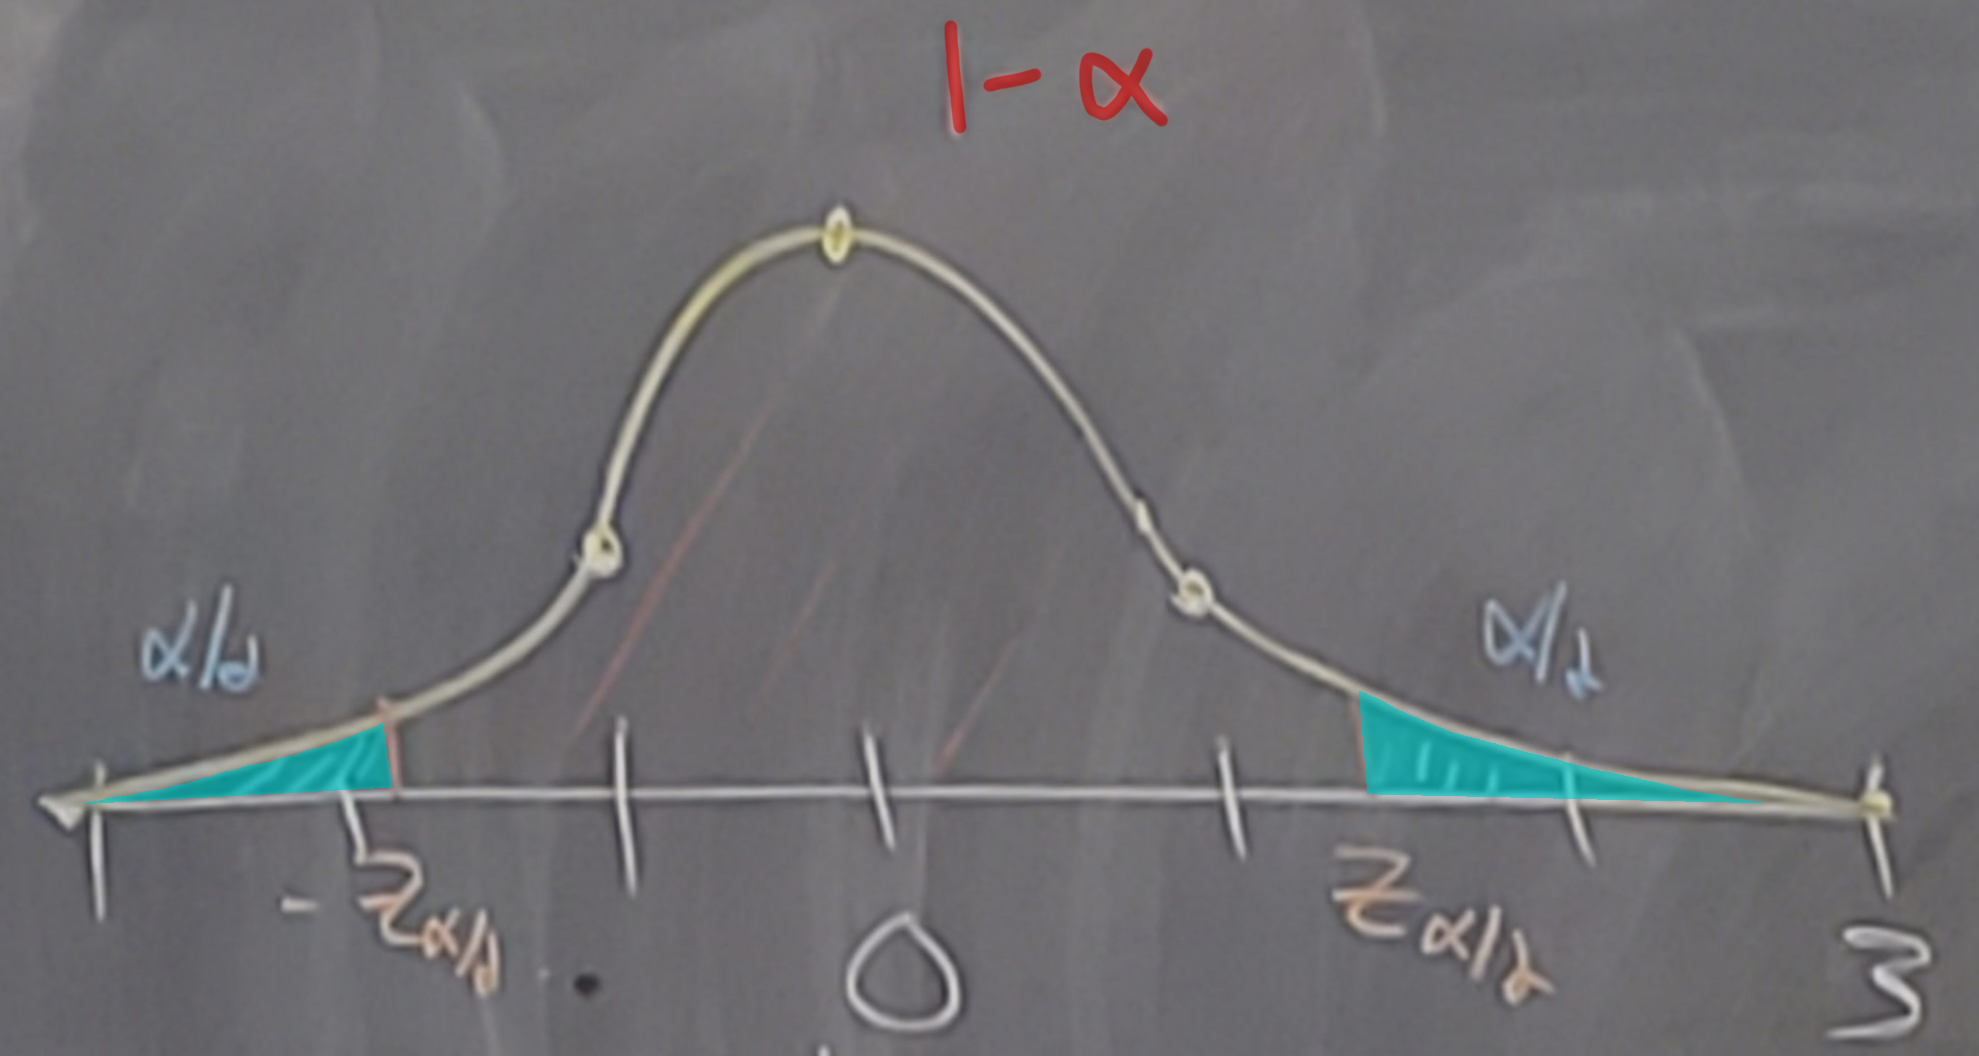 1-α
α/2 α/2
-Zα/2 0 Zα/2 3